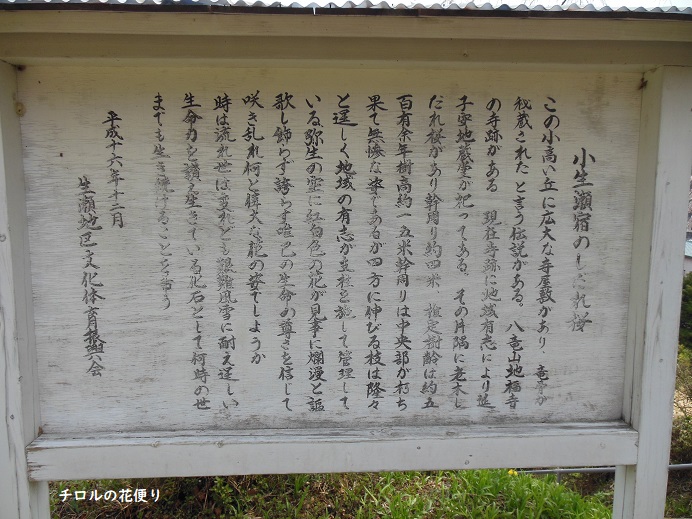 小生瀬宿のしだれ桜
この小高い丘に広大な寺屋敷があり、竜亭が
秘蔵されたと言う伝説がある。八竜山地福寺
の寺跡がある 現在寺跡に地域有志により延
子安地蔵堂が祀ってある、その片隅に老木し
だれ桜があり幹周り約四米 推定樹齢は約五
百有余年樹高約一五米幹周りは中央部が朽ち
果て無惨な姿であるが四方に伸びる枝は隆々
と逞しく地域の有志が支柱を施して管理して
いる弥生の空に紅白色の花が見事に爛漫と謳
歌し飾らず誇らず唯己の生命の尊さを信じて
咲き乱れ何と偉大な花の姿でしようか
時は流れ世は変れども艱難風雪に耐え逞しい
生命力を讃え生きている化石として何時の世
までも生き続けることを希う
平成十六年十二月
生瀬地区文化体育振興会
チロルの花便り